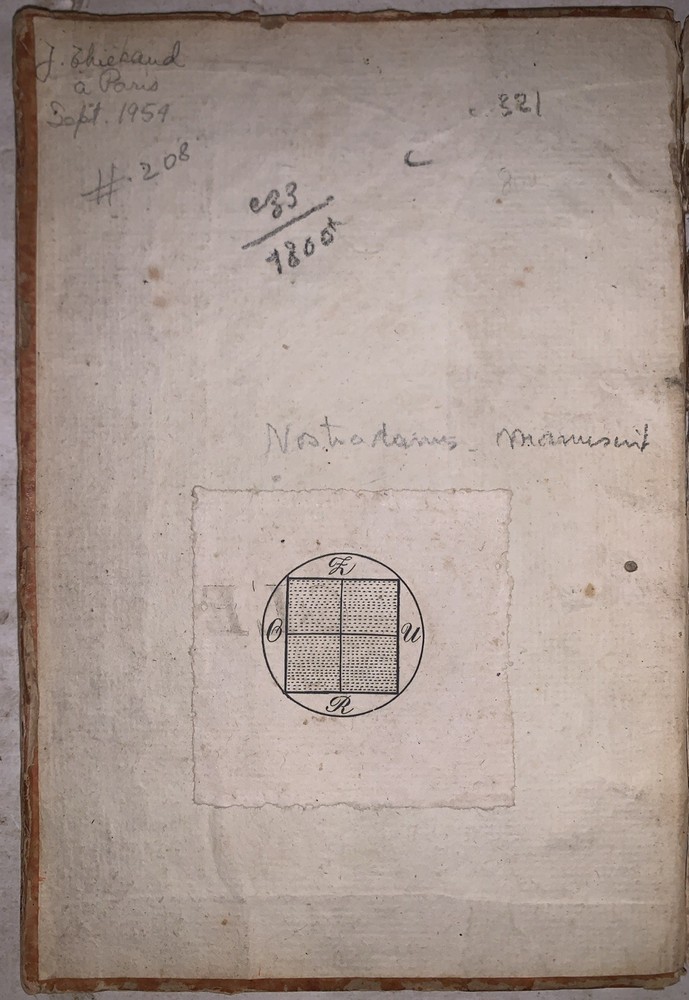 J. Thiebaud
à Paris
Sept. 1959
# 208
321
1800
Nostradamus - manuscrit
Z
O U
R